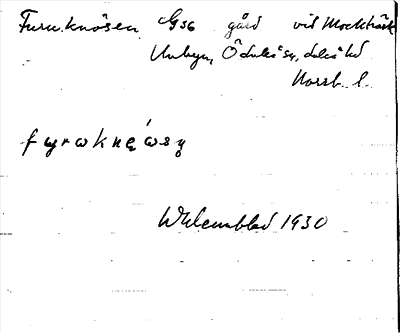 Furuknösen G36 gård vid Mockträsk
Unbyn, Ö duleå sn, duleå hd
Norrb. l.
fyrwknę́wsy
Wklemblad 1930